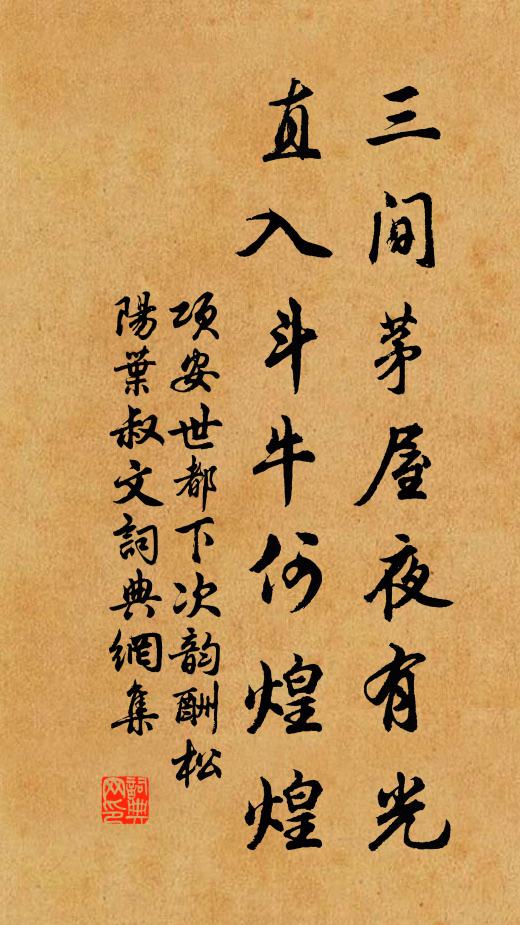 三间茅屋夜有光
直入斗牛何煌煌
项安世都下次韵酬松
陽葉叔文詞典網集
詞典
网印